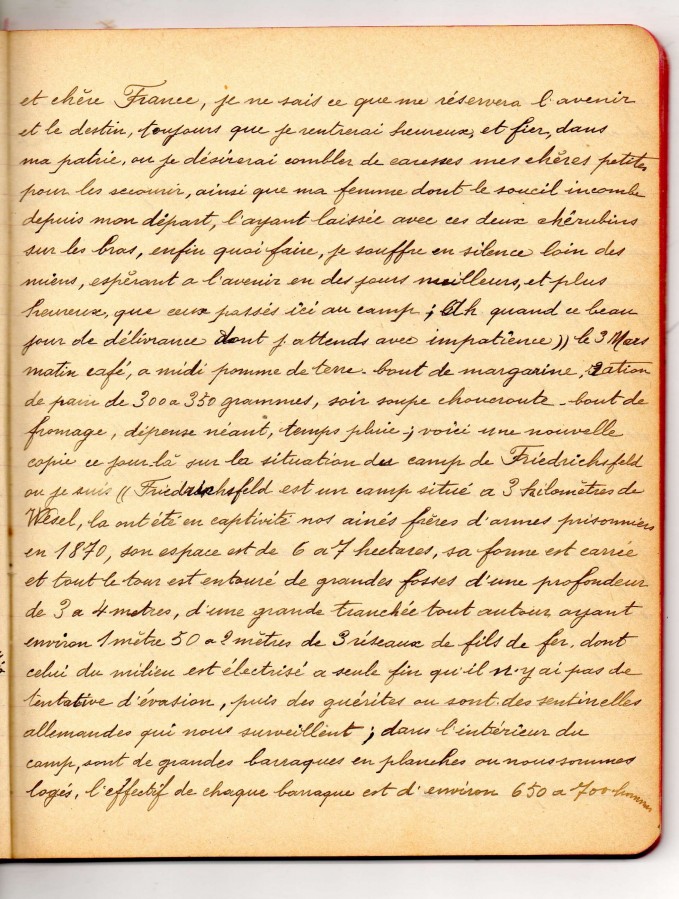 et chère France, je ne sais ce que me réservera l'avenir
et le destin, toujours que je rentrerai heureux, et fier, dans
ma patrie, ou je désirerai combler de caresses mes chères petites
pour les secourir, ainsi que ma femme dont le soucil incombe
depuis mon départ, l'ayant laissée avec ces deux chérubins
sur les bras, enfin quoi faire, je souffre en silence loin des
miens, espérant a l'avenir en des jours meilleurs, et plus
heureux, que ceux passés ici au camp ; Ah quand ce beau
jour de délivrance dont j'attends avec impatience )) le 3 Mars
matin café, a midi pomme de terre - bout de margarine, ration
de pain de 300 a 350 grammes, soir soupe choucroute - bout de
fromage, dépense néant, temps pluie ; voici une nouvelle
copie ce jour-là sur la situation du camp de Friedrichsfeld
ou je suis (( Friedrichsfeld est un camp situé a 3 kilomètres de
Wesel, la ont été en captivité nos ainés frères d'armes prisonniers
en 1870, son espace est de 6 a 7 hectares, sa forme est carrée
et tout le tour est entouré de grandes fosses d'une profondeur
de 3 a 4 metres, d'une grande tranchée tout autour ayant
environ 1 mètre 50 a 2 mètres de 3 réseaux de fils de fer, dont
celui du milieu est électrisé a seule fin qu'il n'y ai pas de
tentative d'évasion, puis des guérites ou sont des sentinelles
allemandes qui nous surveillent ; dans l'intérieur du
camp, sont de grandes barraques en planches ou nous sommes
logés, l'effectif de chaque barraque est d'environ 650 a 700 hommes